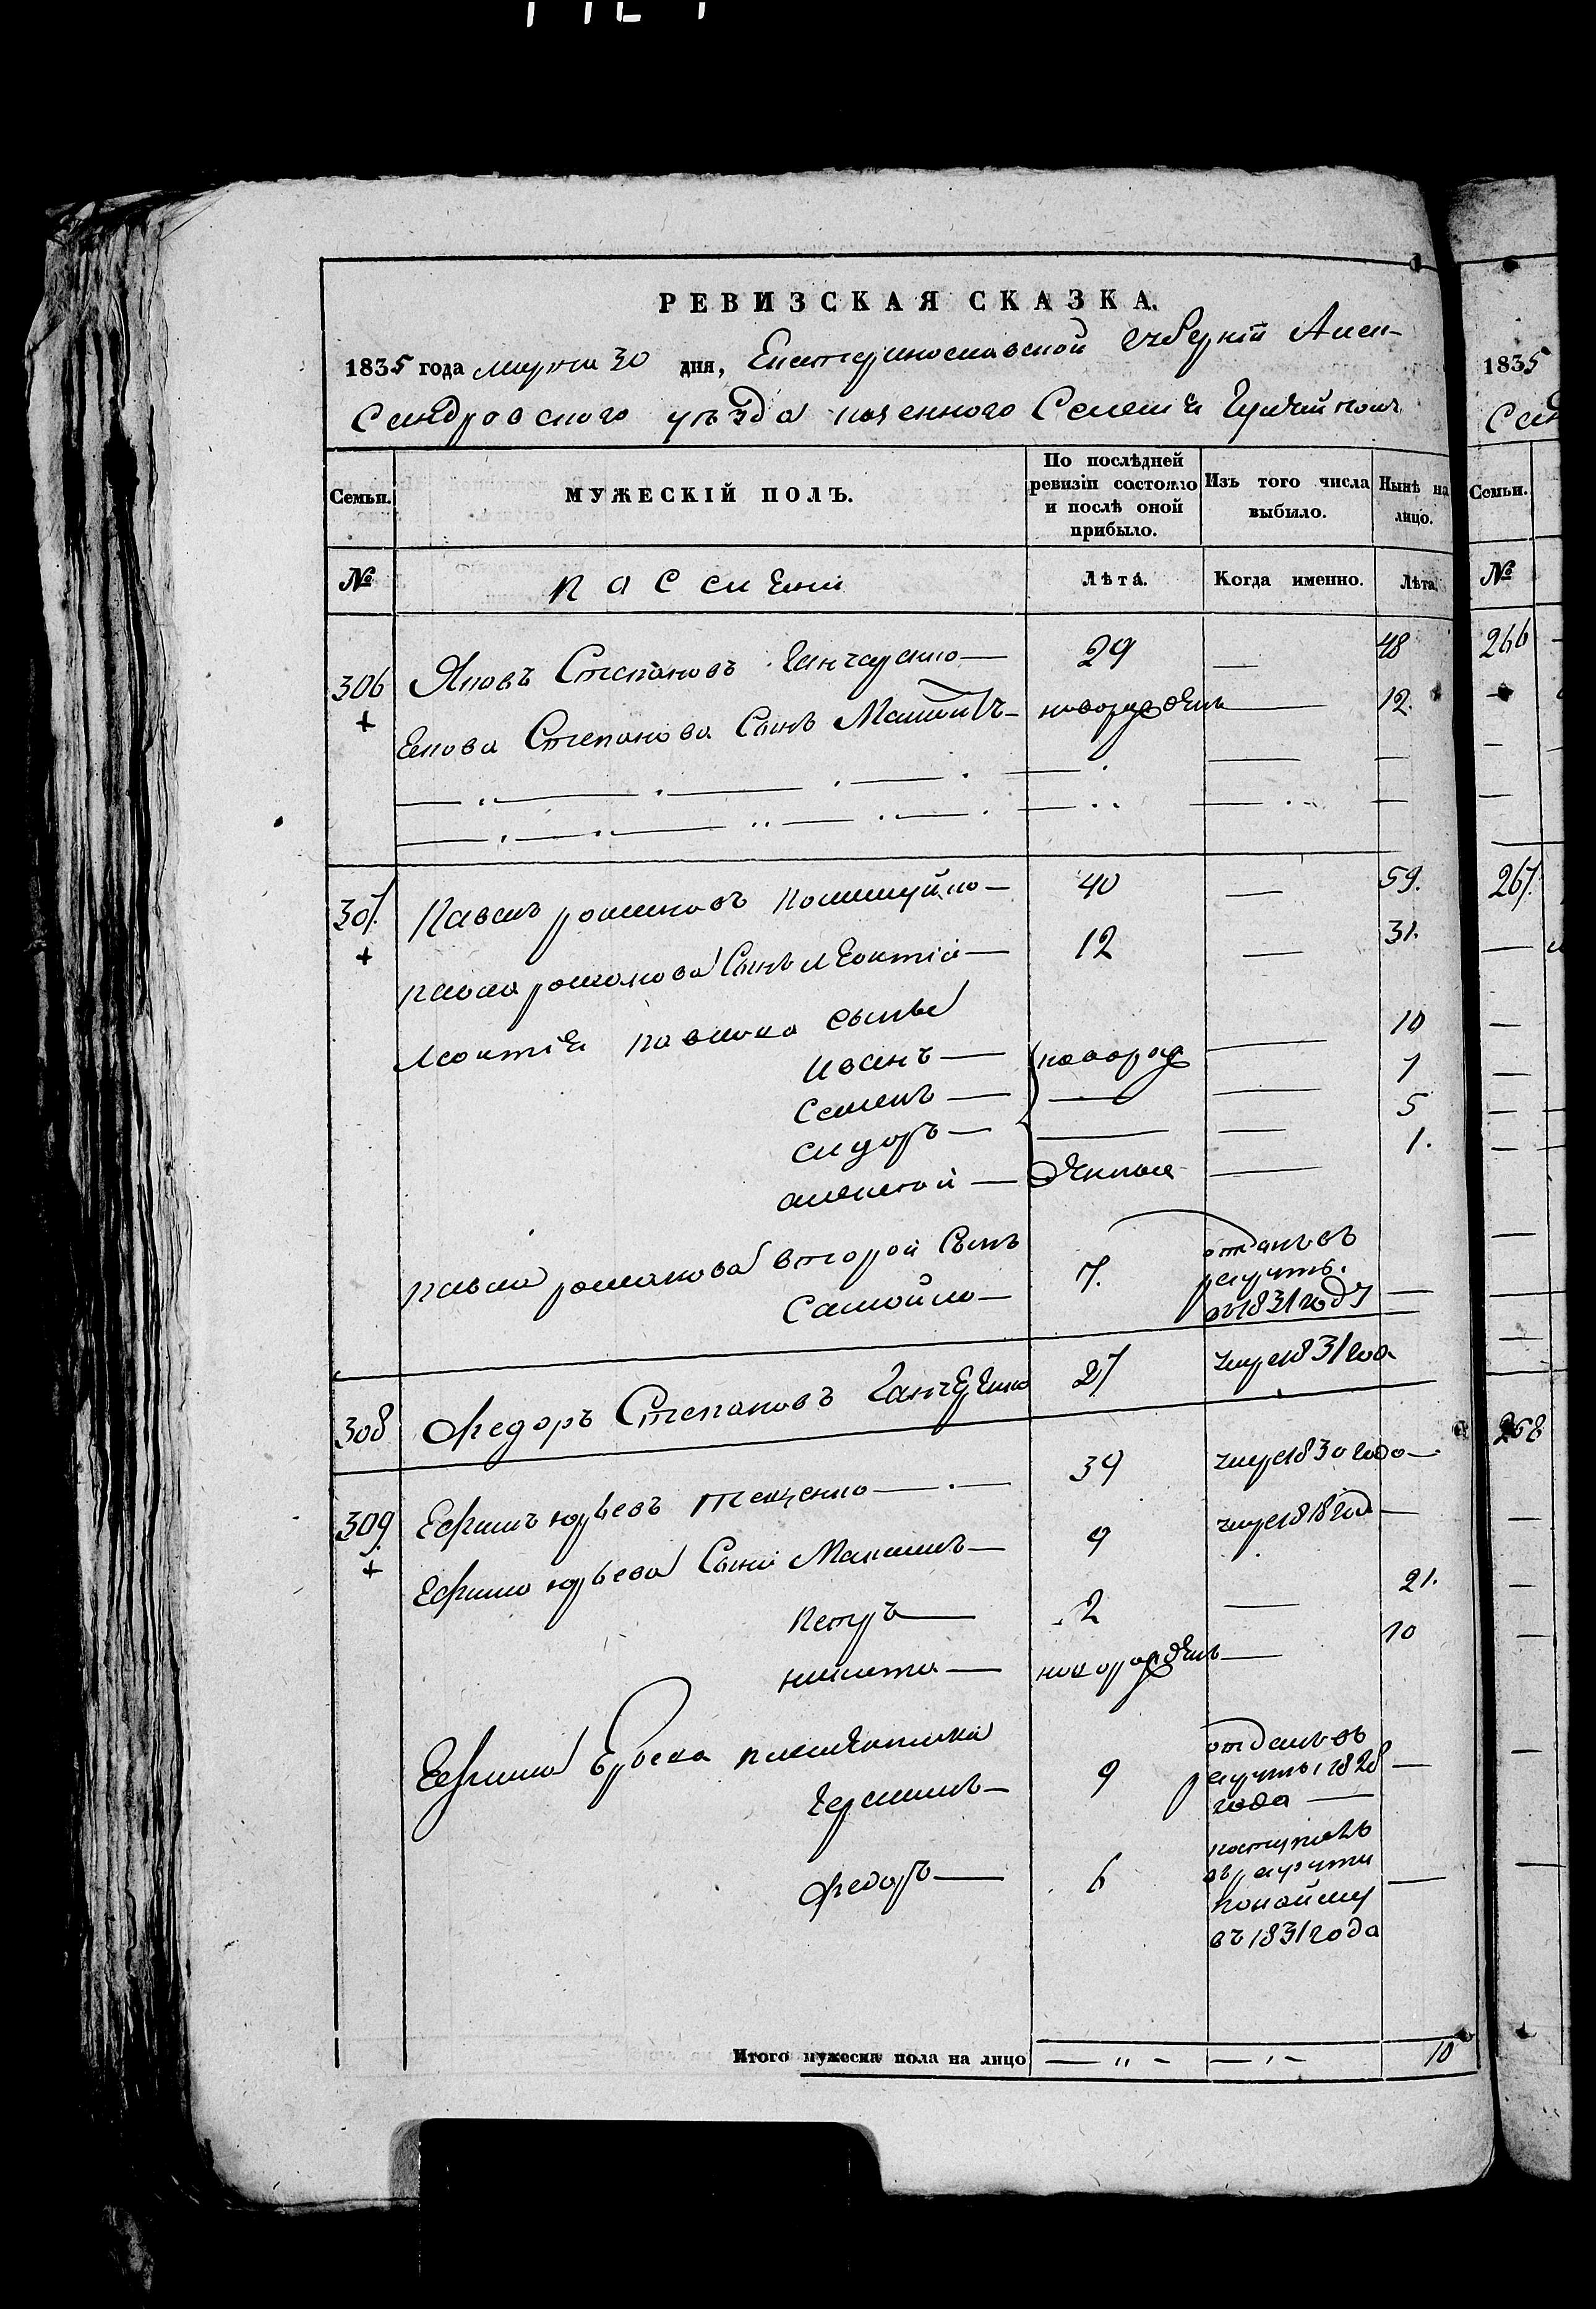 РЕВИЗСКАЯ СКАЗКА.
1835 года марта 30 дня, Екатеринославской губерніи Алек-
сандровского уѣзда казенного Селенія
Семьи.
МУЖЕСКІЙ ПОЛЪ.
По послѣдней ревизіи состояло и послѣ оной прибыло.
Изъ того числа выбыло.
Нынѣ на лицо.
№
Лѣта.
Когда именно.
Лѣта.
306 Яковъ Степановъ Ганчаренко — 29 — 48
+ Якова Степанова Сынъ — новорожденъ — 12.
307. Павелъ романовъ — 40 — 59.
+ павла романова Сынъ леонтій — 12 — 31.
леонтія павлова сынья
иванъ — новорож — 10
семенъ — — — 7
сидоръ — — — 5
алексей — денные — 1.
павла романова второй Сынъ
Самойло — 7. отданъ въ рекруты. въ 1831 году —
308 Федоръ Степановъ Ганчеренко 27 умре 1831 года
309. Ефимъ юрьевъ — 39 умре 1830 года —
+ Ефима юрьева Сыни Максимъ — 9 умре 1818 год —
петръ — 2 — 21.
никита — новорожденъ — 10
Ефима Юрьева племянники
Герасимъ — 9 отданъ въ рекруты 1828 года —
Федоръ — 6 поступилъ въ рекруты по найму въ 1831 года —
Итого мужеска пола на лицо — „ — — „ — 10
1835
Семьи.
№
266
267.
268